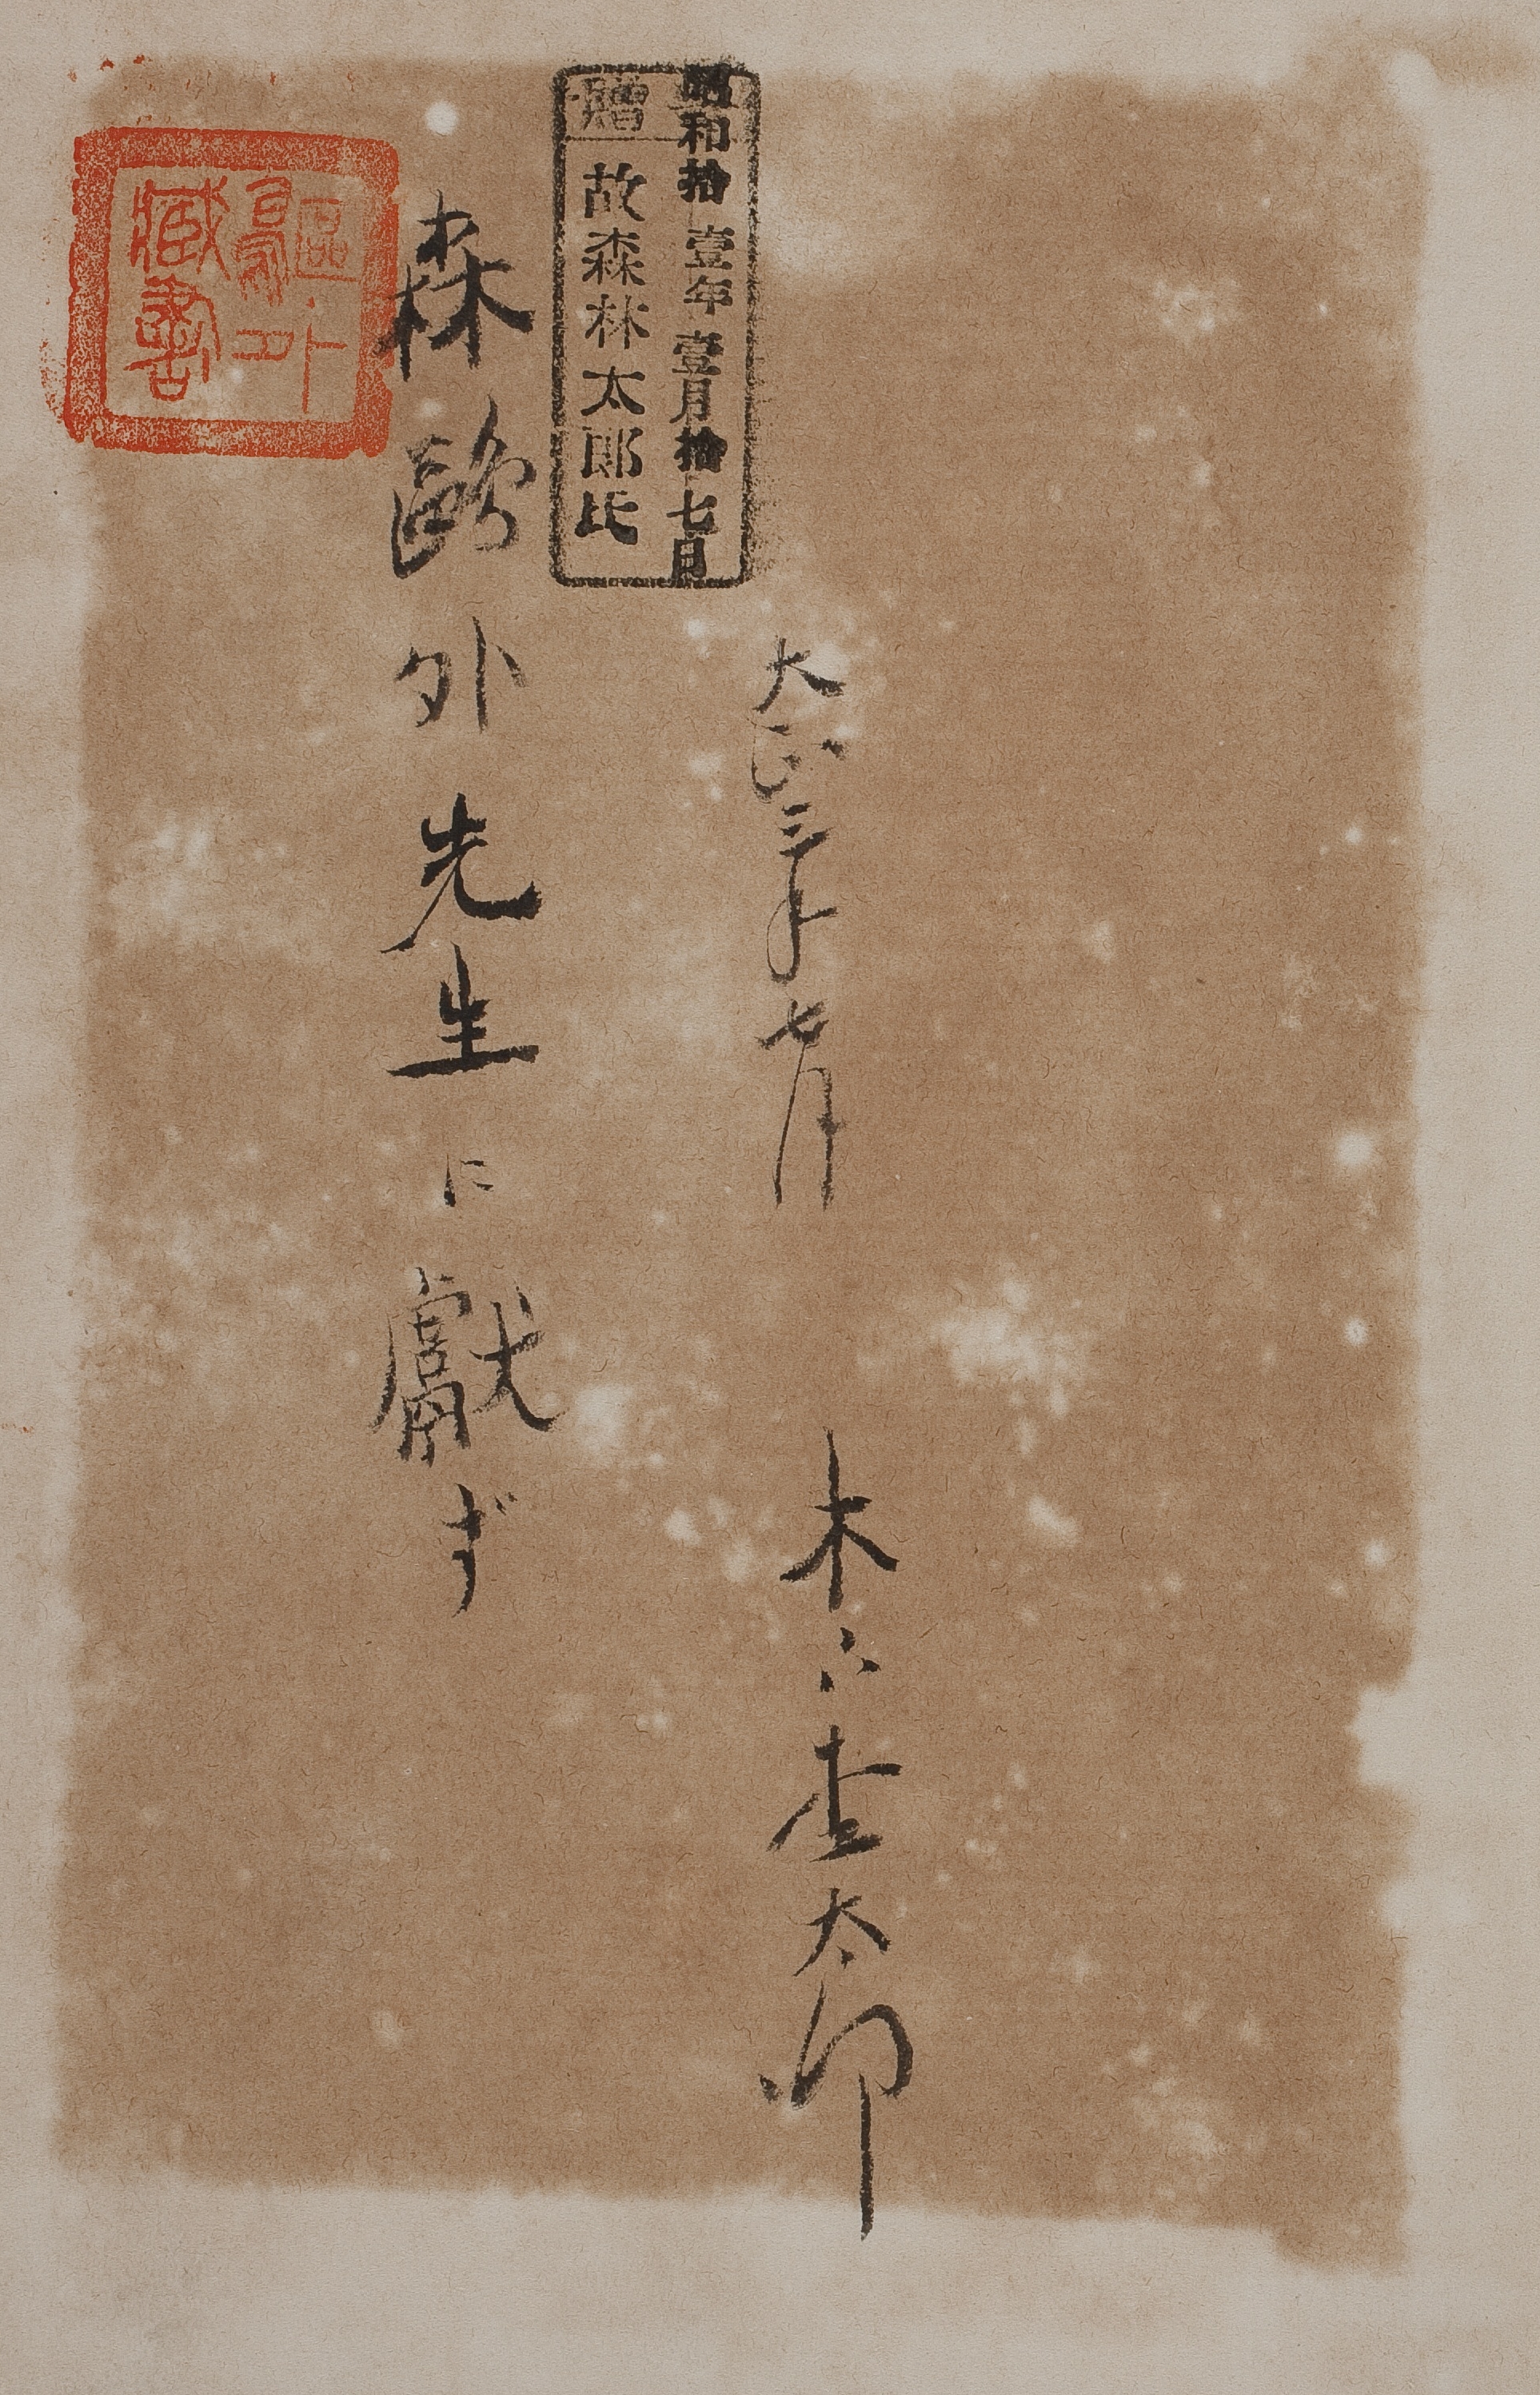 大正三年七月 木下杢太郎
昭和拾壹年壹月拾七日
贈
故森林太郎氏
森鷗外先生に獻ず
鷗外
藏書